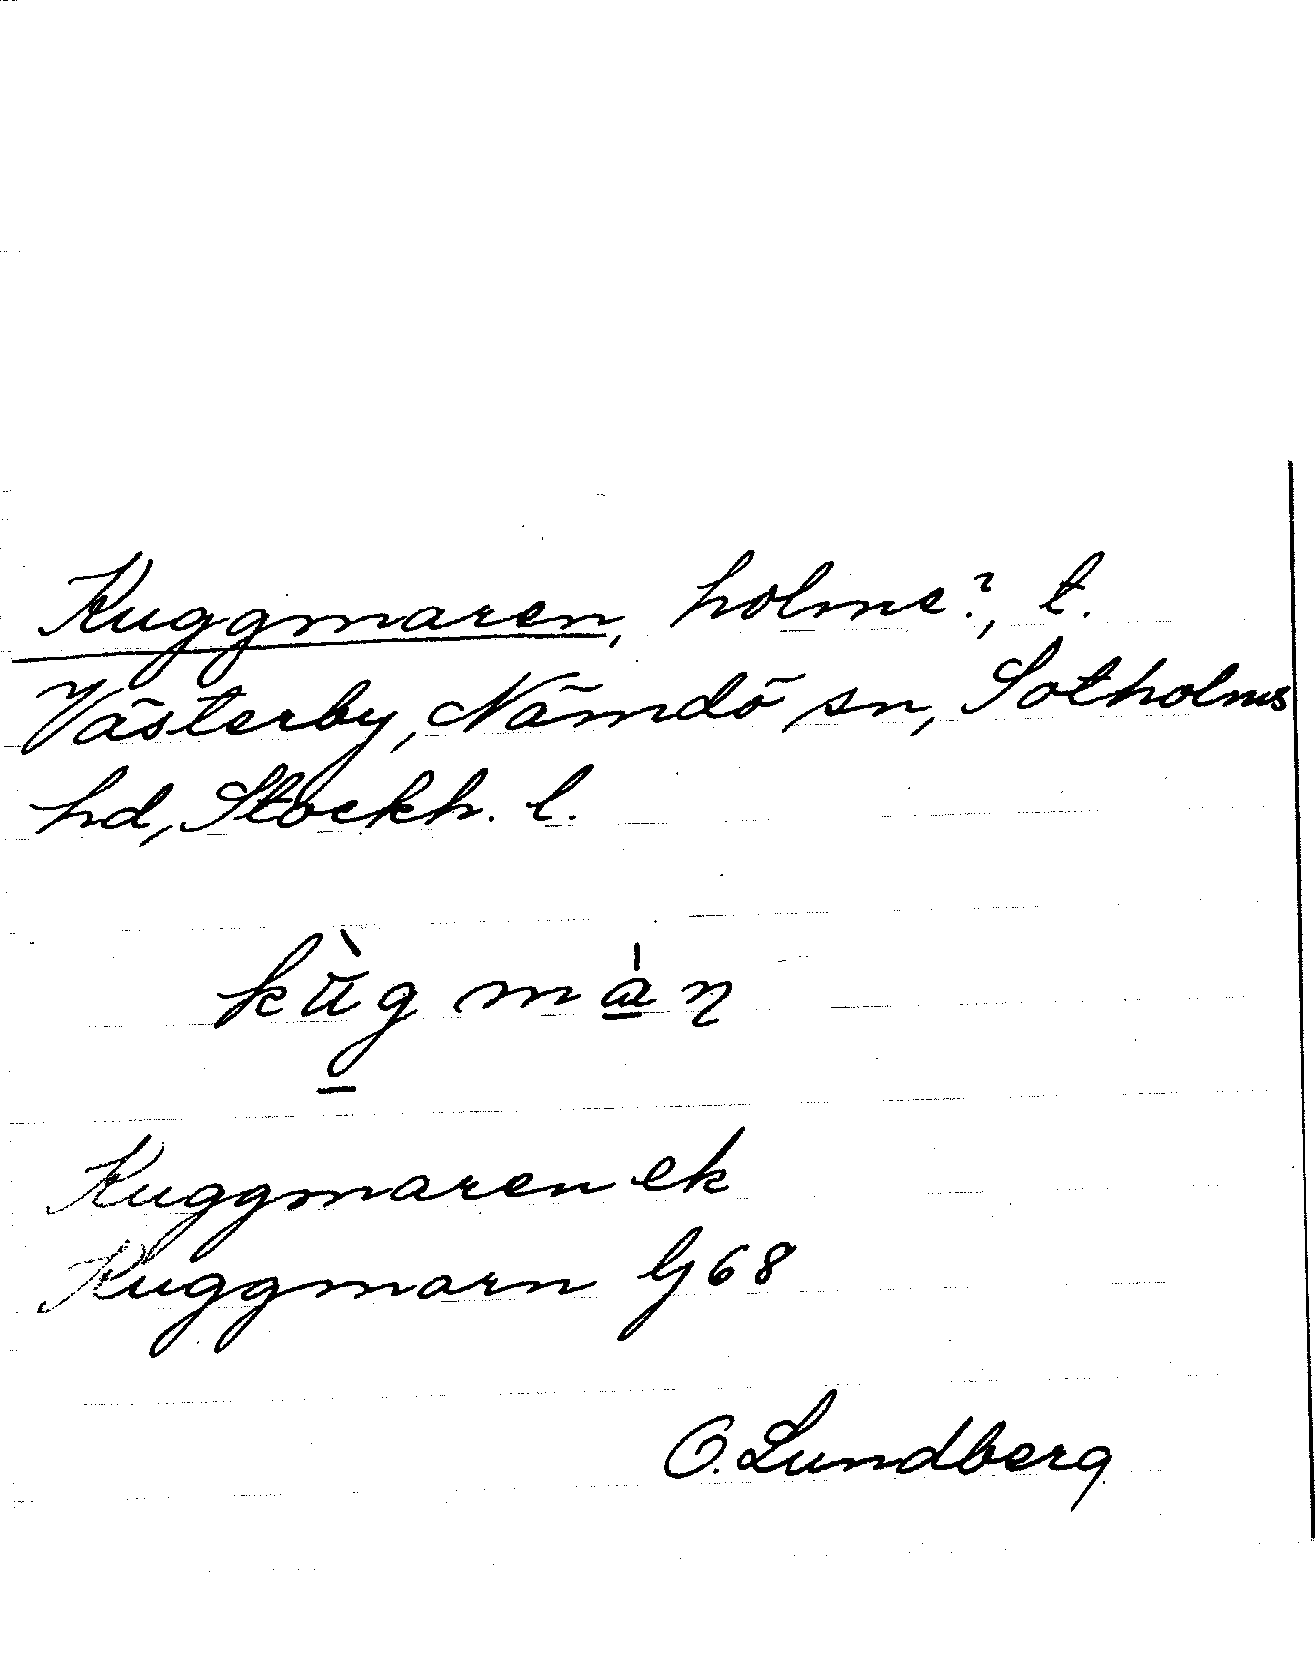 Kuggmaren, holme?, t.
Västerby, Nämdö sn, Sotholms
hd, Stockh. l.
kùg mȧn̡
Kuggmaren ek
Kuggmarn G 68
O. Lundberg